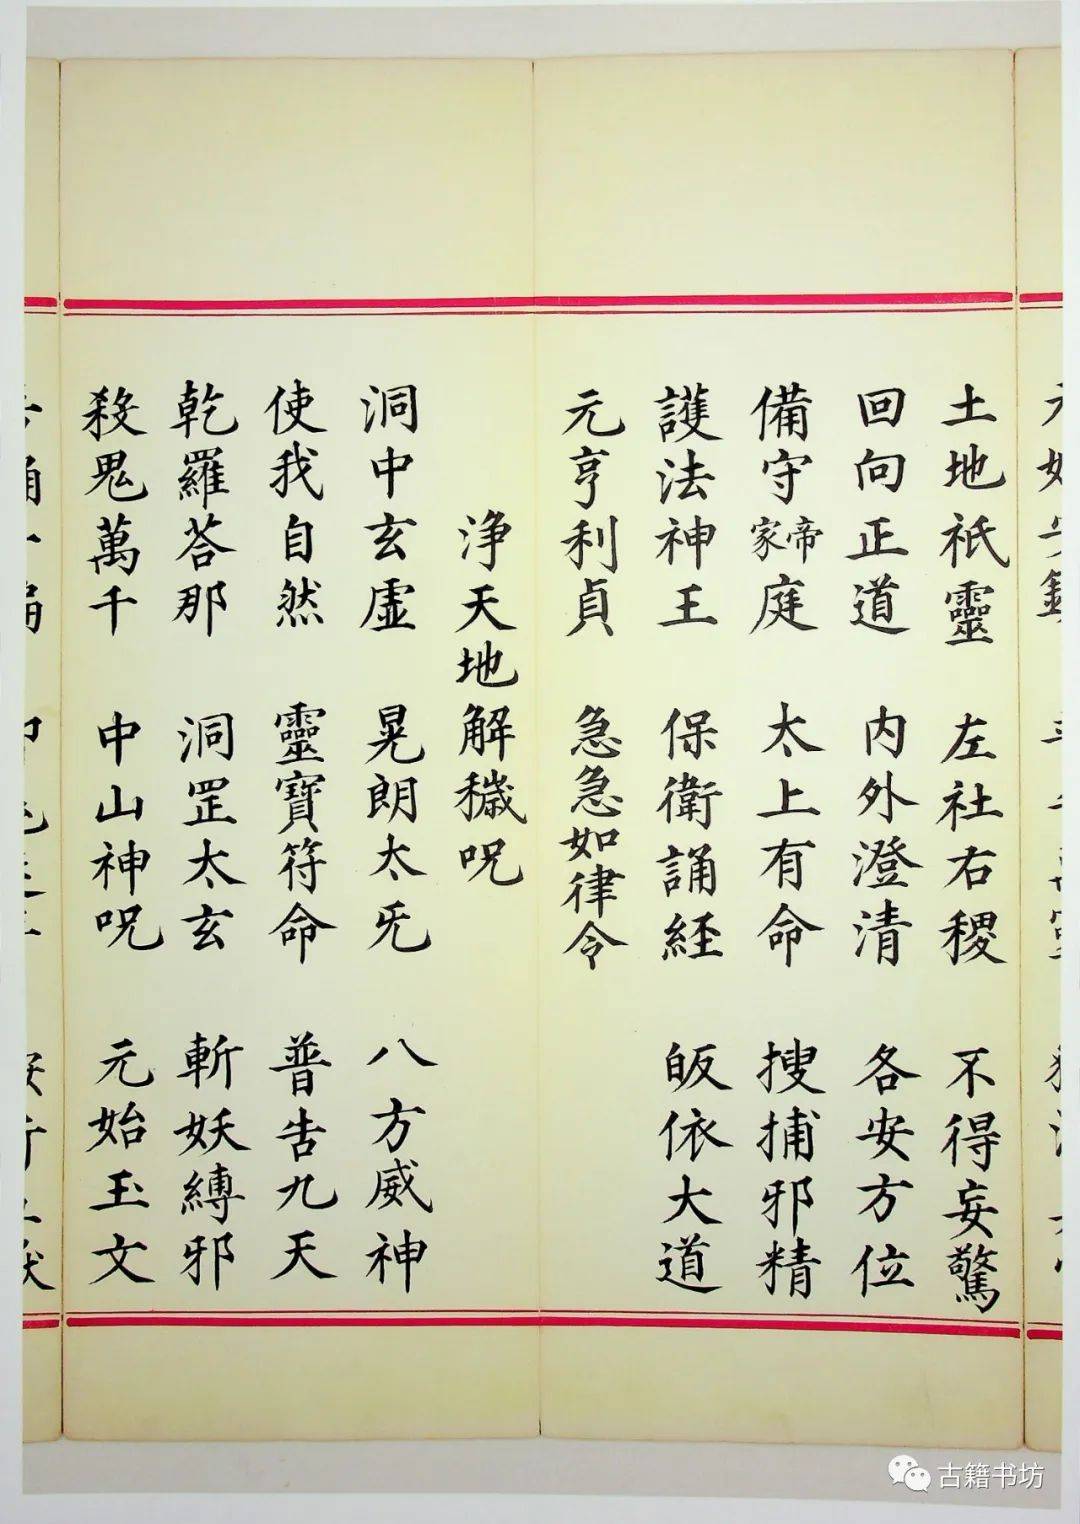 土地祇靈 左社右稷 不得妄驚
回向正道 内外澄清 各安方位
備守家帝庭 太上有命 搜捕邪精
護法神王 保衛誦経 皈依大道
元亨利貞 急急如律令
浄天地解穢呪
洞中玄虛 晃朗太旡 八方威神
使我自然 靈寶符命 普告九天
乾羅荅那 洞罡太玄 斬妖縛邪
殺鬼萬千 中山神呪 元始玉文
古籍书坊